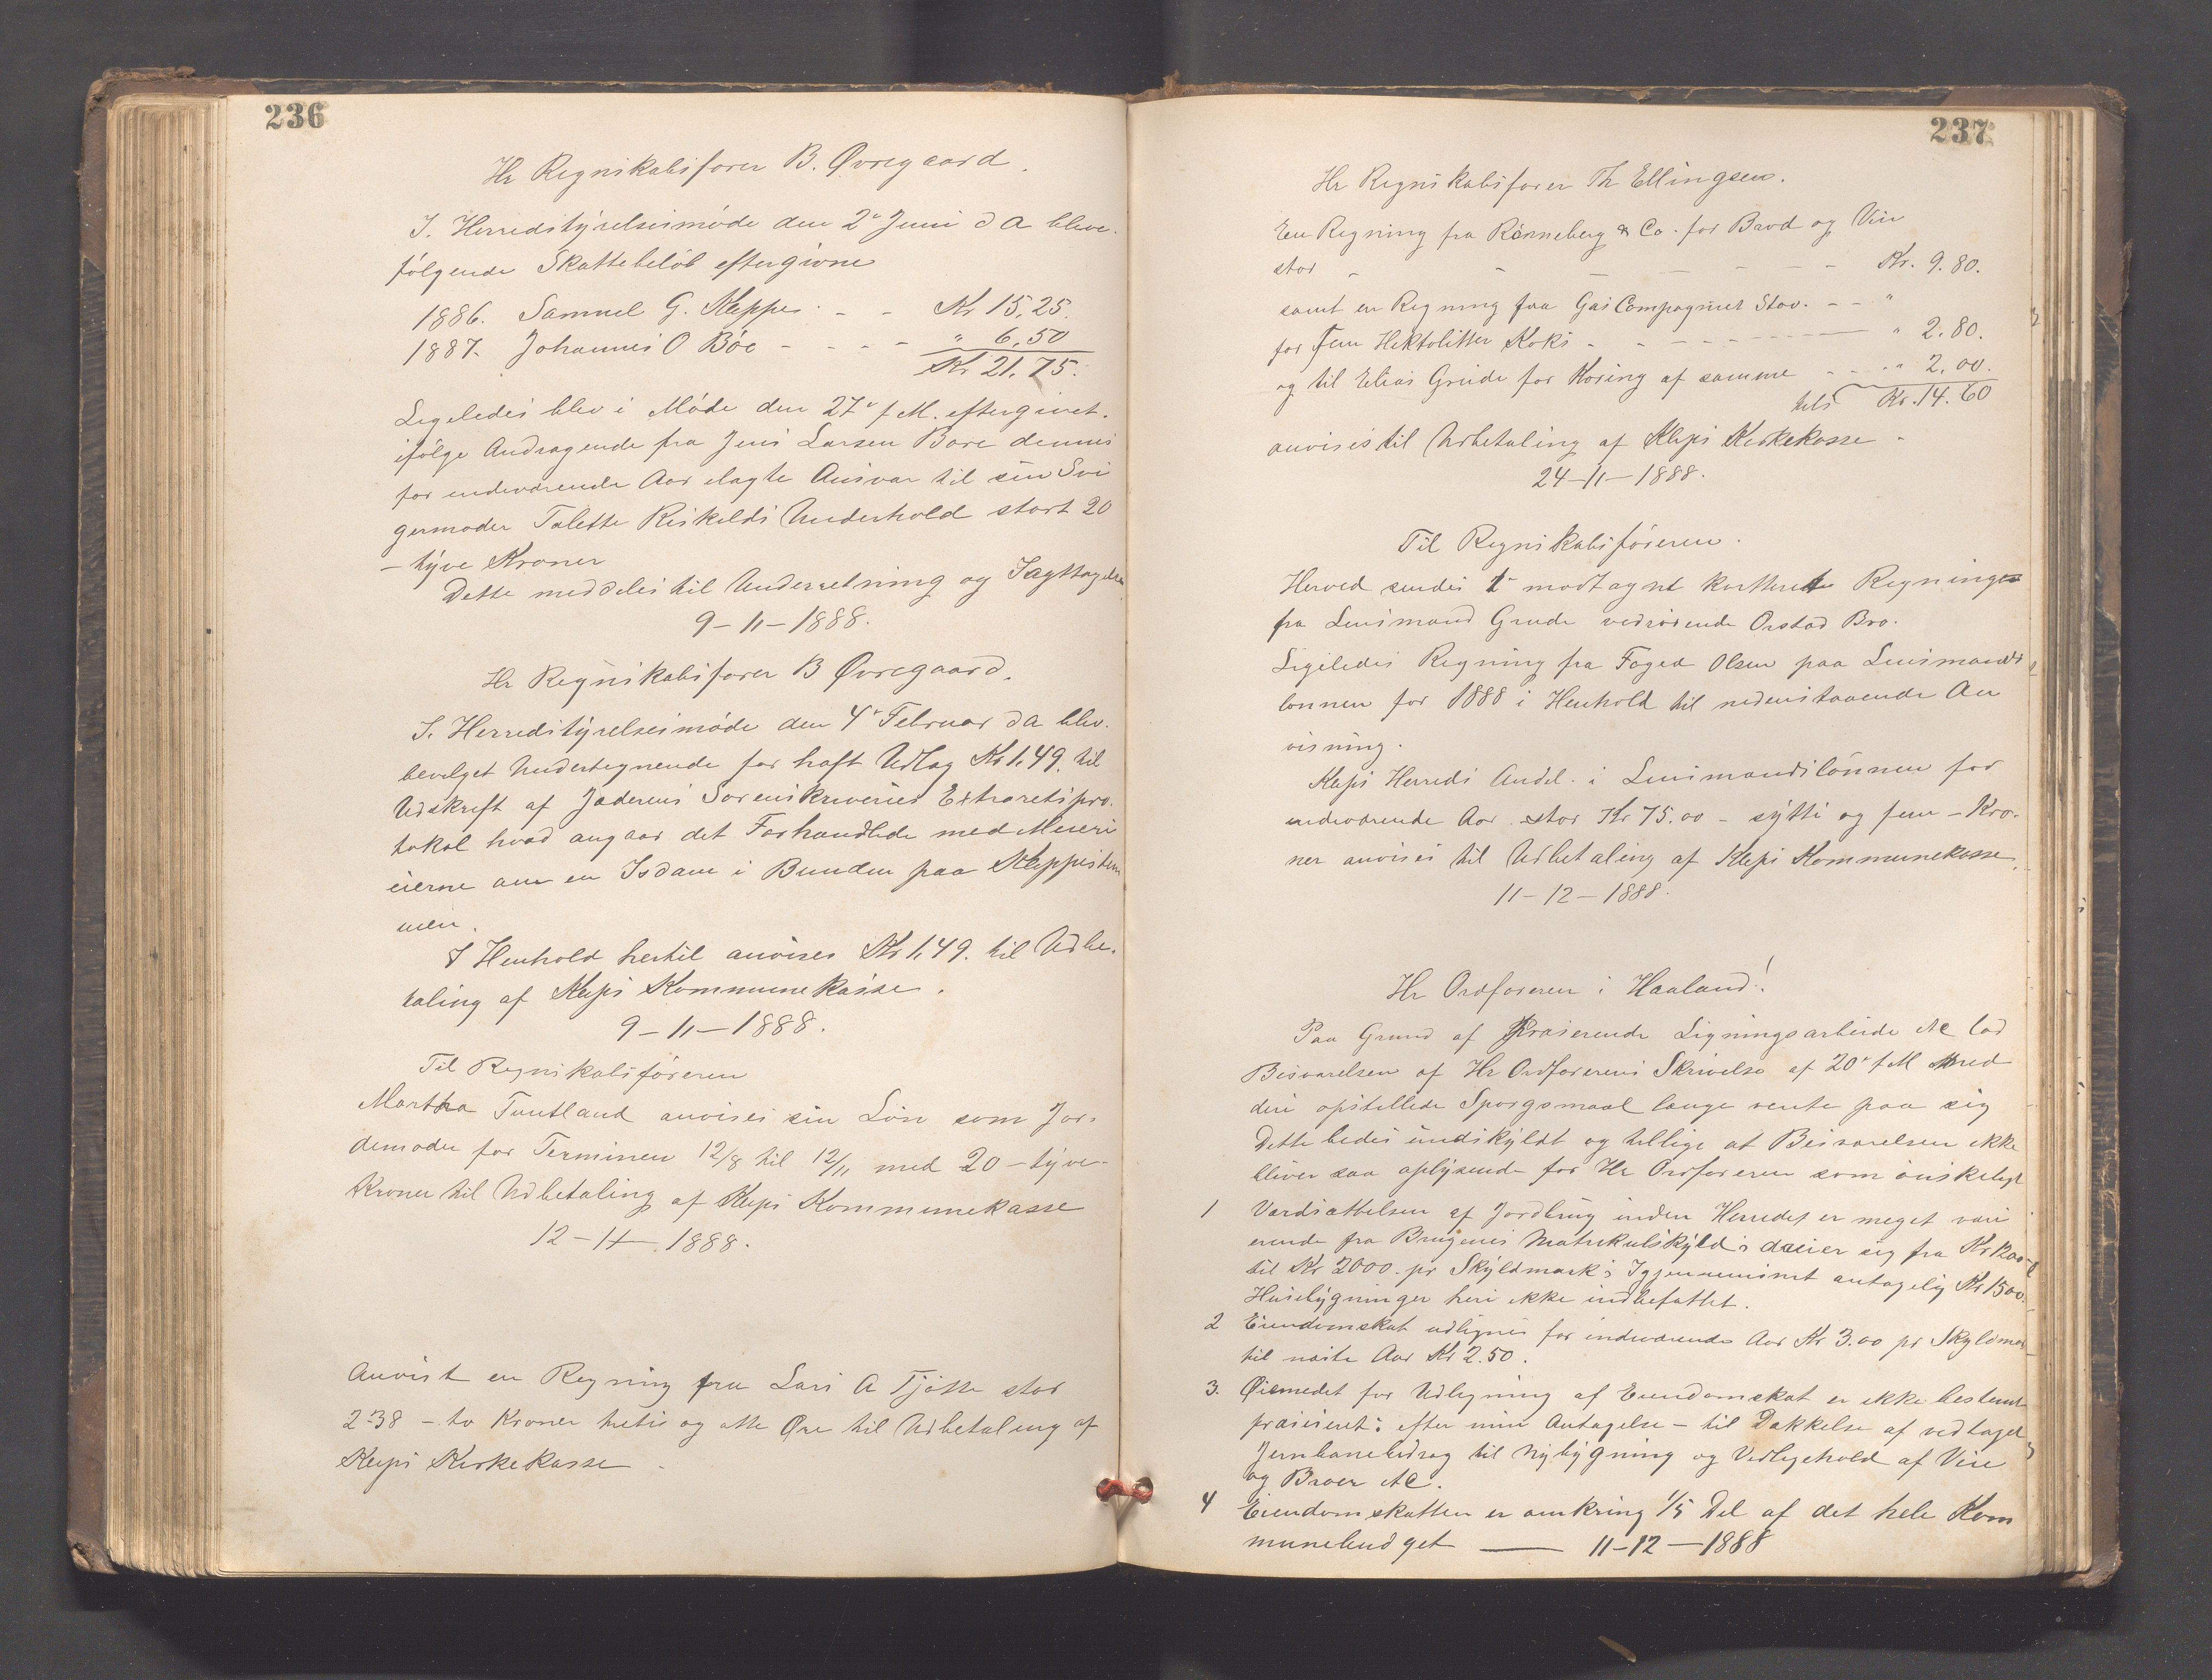 236
Hr Regnskabsfører B. Øvregaard.
I. Herredstyrelsesmøde den 2' Juni d A bleve.
følgende Skattebeløb eftergivne
1886. Samuel G. Kleppe. - - Kr 15,25.
1887. Johannes O Böe - - - - " 6,50
Kr 21.75.
Ligeledes blev i Møde den 27' f M. eftergivet.
ifølge Andragende fra Jens Larsen Bore dennes
for indeværende Aar ilagte Ansvar til sin Svi
germoder Talette Reskelds Underhold stort 20
- tyve Kroner
Dette meddeles til Underretning og Iagttagelse
9-11-1888.
Hr Regnskabsfører B Øvregaard.
I. Herredstyrelsesmøde den 4' Februar d A blev.
bevilget Undertegnende for haft Udlag Kr 1,49. til
Udskrift af Jæderens Sorenskriveries Extraretspro.
tokol hvad angaar det Forhandlede med Meieri
eierne om en Isdam i Bunden paa Kleppestem
men.
I Henhold hertil anvises Kr 1,49. til Udbe.
taling af Kleps Kommunekasse.
9-11-1888.
Til Regnskabsføreren
Martha Tuntland anvises sin Løn som Jor-
demoder for Terminen 12/8 til 12/11 med 20 - tyve-
Kroner til Udbetaling af Kleps Kommunekasse
12-11-1888.
Anvist en Regning fra Lars A Tjøtte stor
2-38 - to Kroner tretis og otte Øre til Udbetaling af
Kleps Kirkekasse -
237
Hr Regnskabsfører Th Ellingsen.
En Regning fra Rönneberg & Co. for Brød og Vin
stor - - - - - - Kr. 9.80.
samt en Regning fra Gas Compagniet Stav. - - "
for fem Hektolitter Koks - - - - - " 2.80.
og til Elias Grude for Køring af samme - - - " 2,00.
tils Kr. 14.60
anvises til Udbetaling af Kleps Kirkekasse -
24-11-1888.
Til Regnskabsføreren.
Herved sendes modtagne kvitterede Regninger
fra Lensmand Grude vedrørende Orstad Bro.
Ligeledes Regning fra Foged Olsen paa Lensmands
lønnen for 1888 i Henhold til nedenstaaende An
visning.
Kleps Herreds Andel. i Lensmandslönnen for
indeværende Aar stor Kr 75.00 - sytti og fem - Kro.
ner anvises til Udbetaling af Kleps Kommunekasse.
11-12-1888.
Hr Ordføreren i Haaland!
Paa Grund af Præserende Ligningsarbeide etc lod
Besvarelsen af Hr Ordførerens Skrivelse af 20' f M med
deri opstillede Spørgsmaal længe vente paa sig
Dette bedes undskyldt og tillige at Besvarelsen ikke
bliver saa oplysende for Hr Ordføreren som ønskeligt
1 Værdsættelsen af Jordbrug inden Herredet er meget vari
erende fra Brugenes Matrikulskyld; dreier sig fra Kr 1200
til Kr 2000. pr Skyldmark; Igjennemsnit antagelig Kr 1500.
Husebygninger heri ikke indbefattet.
2 Eiendomskat udlignes for indeværende Aar Kr 3.00 pr Skyldmark
til næste Aar Kr 2.50.
3. Øiemedet for Udligning af Eiendomskat er ikke bestemt
præsiseret: efter min Antagelse - til Dækkelse af vedtaget
Jernbanebidrag til Nybygning og Vedligehold af Veie
og Broer etc.
4 Eiendomskatten er omkring 1/5 Del af det hele Kom
munebudget —— 11-12-1888